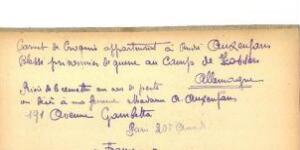 Carnet de Croquis appartenant à André Auzenfans
Blessé prisonnier de guerre au Camp de Zossen
Allemagne
Prière de le remettre en cas de perte
ou décès à ma femme Madame A. Auzenfans
191 Avenue Gambetta
Paris 20e Arrdt